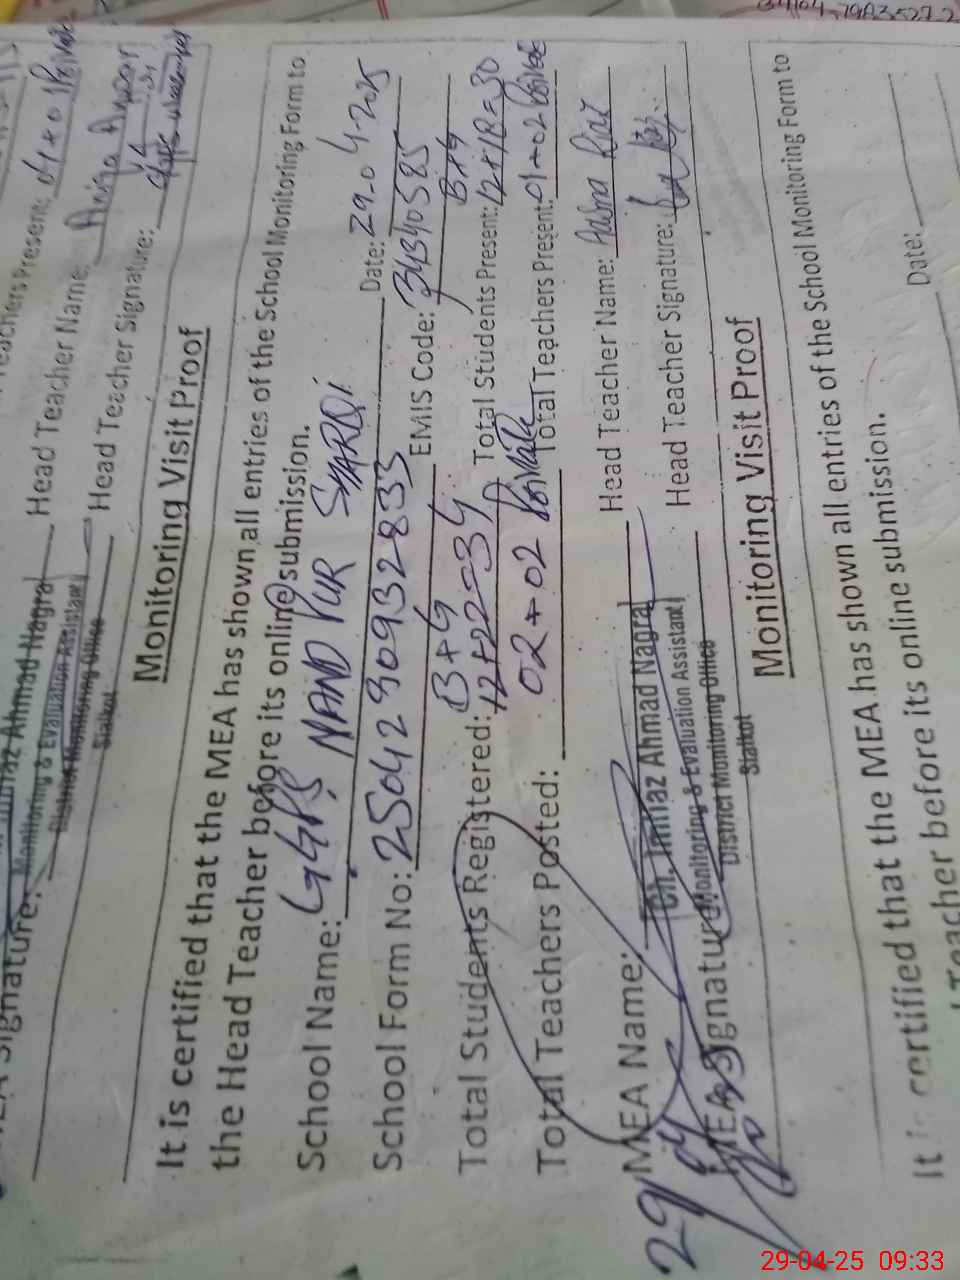 Teachers Present: 01+01 Private
Head Teacher Name: Aniqa Anwar
Signature: Imtiaz Ahmad Nagra
Monitoring & Evaluation Assistant
District Monitoring Office
Sialkot
Head Teacher Signature:
Monitoring Visit Proof
It is certified that the MEA has shown all entries of the School Monitoring Form to
the Head Teacher before its online submission.
School Name: GGPS NAND PUR SHARQI Date: 29-04-2025
School Form No: 2504293093 2833 EMIS Code: 34340585
Total Students Registered: B+G 12+22=34 Total Students Present: B+G 12+18=30
Total Teachers Posted: 02+02 Private Total Teachers Present: 01+02 Private
MEA Name: Ch. Imtiaz Ahmad Nagra Head Teacher Name: Asma Riaz
Monitoring & Evaluation Assistant
District Monitoring Office
Sialkot
MEA Signature: Head Teacher Signature:
29/04
Monitoring Visit Proof
It is certified that the MEA has shown all entries of the School Monitoring Form to
Teacher before its online submission.
Date:
29-04-25 09:33